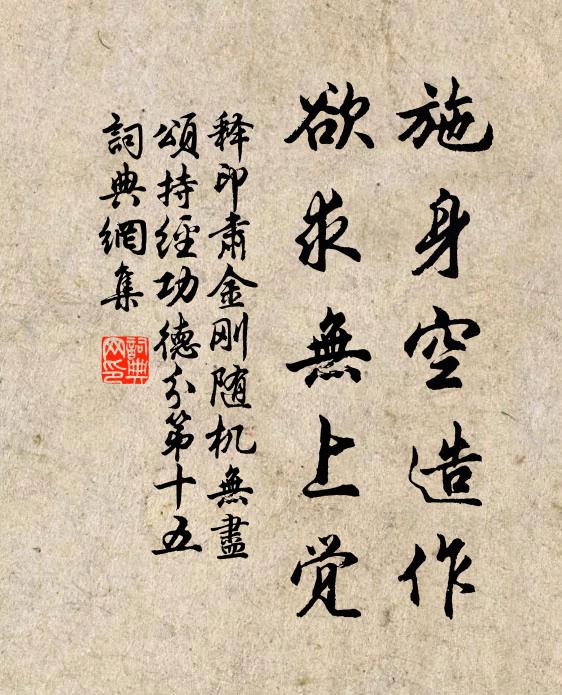 施身空造作
欲求無上覚
释印肃金刚随机無盡
頌持經功德分第十五
詞典網集
詞典
网印